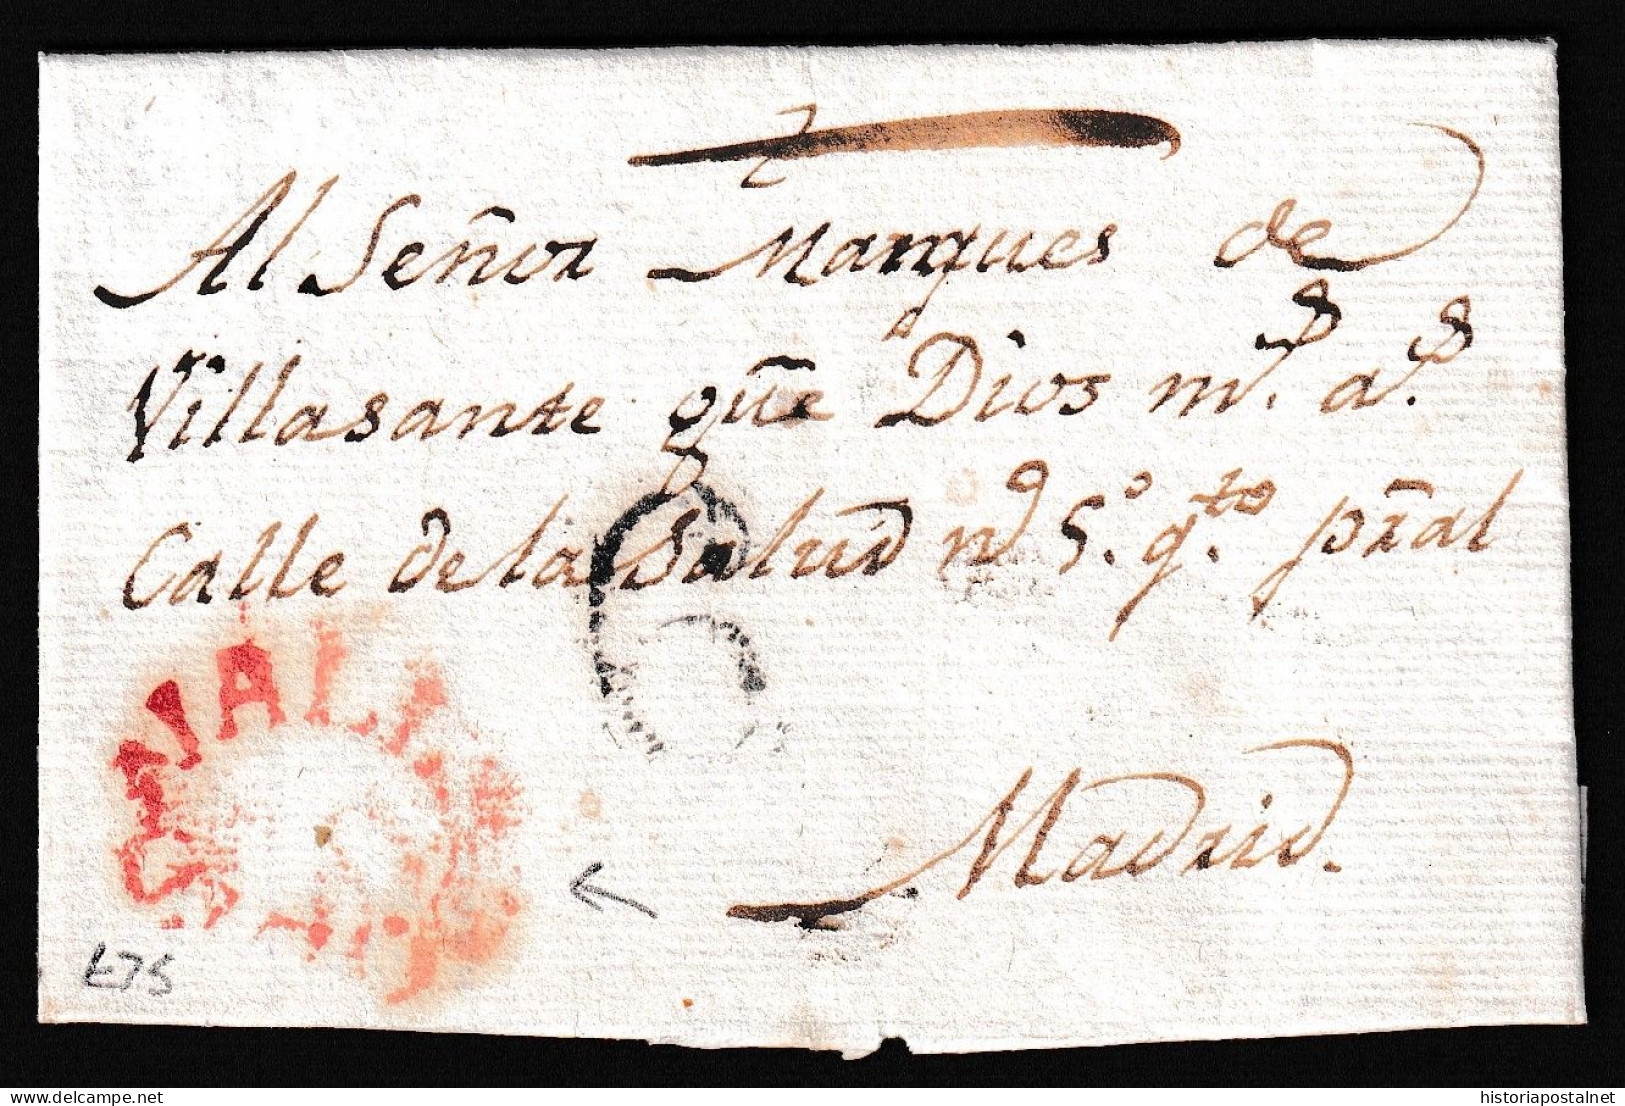 Al Señor Marques de
Villasante qũe Dios m.s a.s
Calle de la Salud nº 5.º q.to pral
Madrid.
historiapostalnet